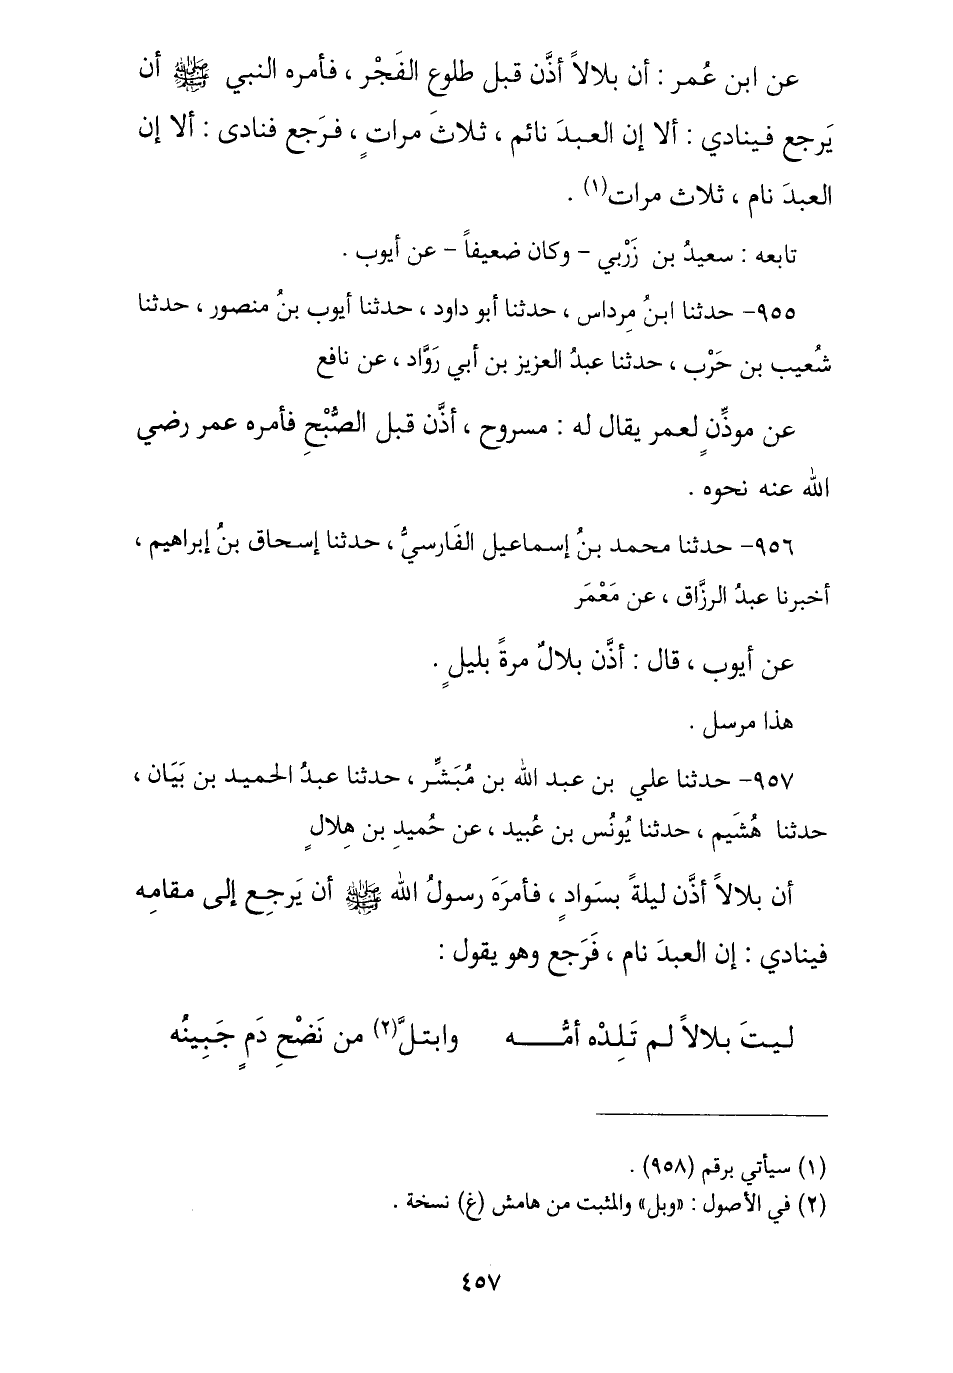 عن ابن عُمر : أن بلالاً أذَّن قبل طلوع الفَجْر ، فأمره النبي ﷺ أن
يَرجع فينادي : ألا إن العبدَ نائم ، ثلاثَ مراتٍ ، فرَجع فنادى : ألا إن
العبدَ نام ، ثلاث مرات(١) .
تابعه : سعيدُ بن زَرْبي - وكان ضعيفاً - عن أيوب .
٩٥٥- حدثنا ابنُ مِرداس ، حدثنا أبو داود ، حدثنا أيوب بنُ منصور ، حدثنا
شُعيب بن حَرْب ، حدثنا عبدُ العزيز بن أبي رَوَّاد ، عن نافع
عن موذِّنٍ لعمر يقال له : مسروح ، أذَّن قبل الصُّبْحِ فأمره عمر رضي
الله عنه نحوه .
٩٥٦- حدثنا محمد بنُ إسماعيل الفَارسيُّ ، حدثنا إسحاق بنُ إبراهيم ،
أخبرنا عبدُ الرزَّاق ، عن مَعْمَر
عن أيوب ، قال : أذَّن بلالٌ مرةً بليلٍ .
هذا مرسل .
٩٥٧- حدثنا علي بن عبد الله بن مُبَشِّر ، حدثنا عبدُ الحميد بن بَيَان ،
حدثنا هُشَيم ، حدثنا يُونُس بن عُبيد ، عن حُميدِ بن هِلالٍ
أن بلالاً أذَّن ليلةً بسَوادٍ ، فأمرَهَ رسولُ الله ﷺ أن يَرجِع إلى مقامِه
فينادي : إن العبدَ نام ، فَرَجع وهو يقول :
ليتَ بلالاً لم تَلِدْه أمُّـــــه وابتلَّ(٢) من نَضْحِ دَمٍ جَبِينُه
(١) سيأتي برقم (٩٥٨) .
(٢) في الأصول : «وبل» والمثبت من هامش (غ) نسخة .
٤٥٧